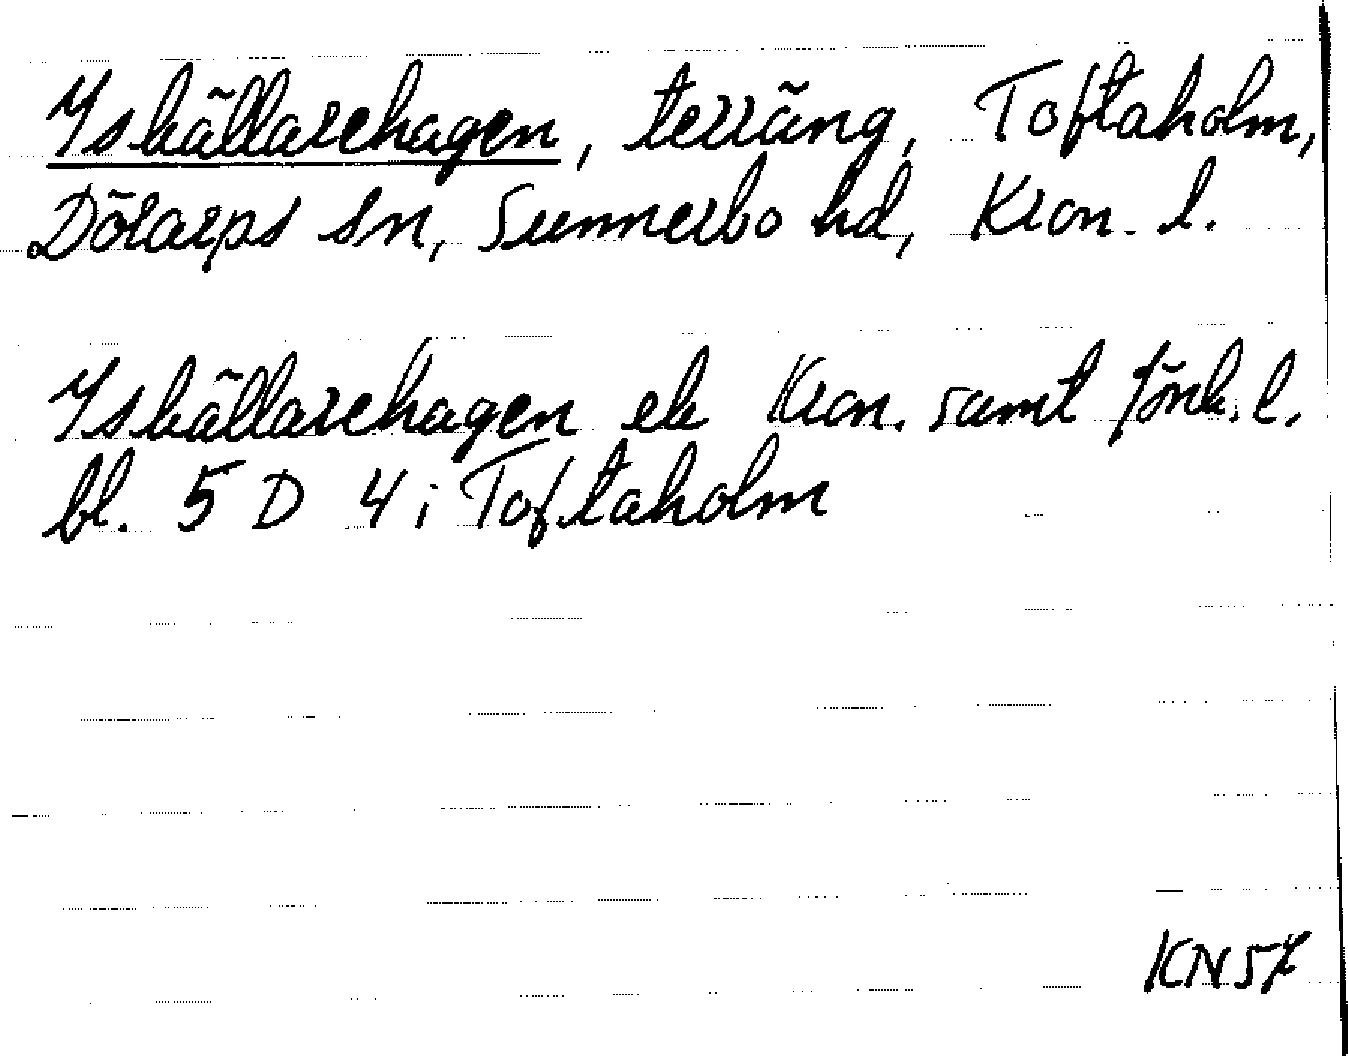 Iskällarehagen, terräng, Toftaholm,
Dörarps sn, Sunnerbo hd, Kron. l.
Iskällarehagen ek Kron. samt Jönk. l.
bl. 5 D 4 i Toftaholm
KN57